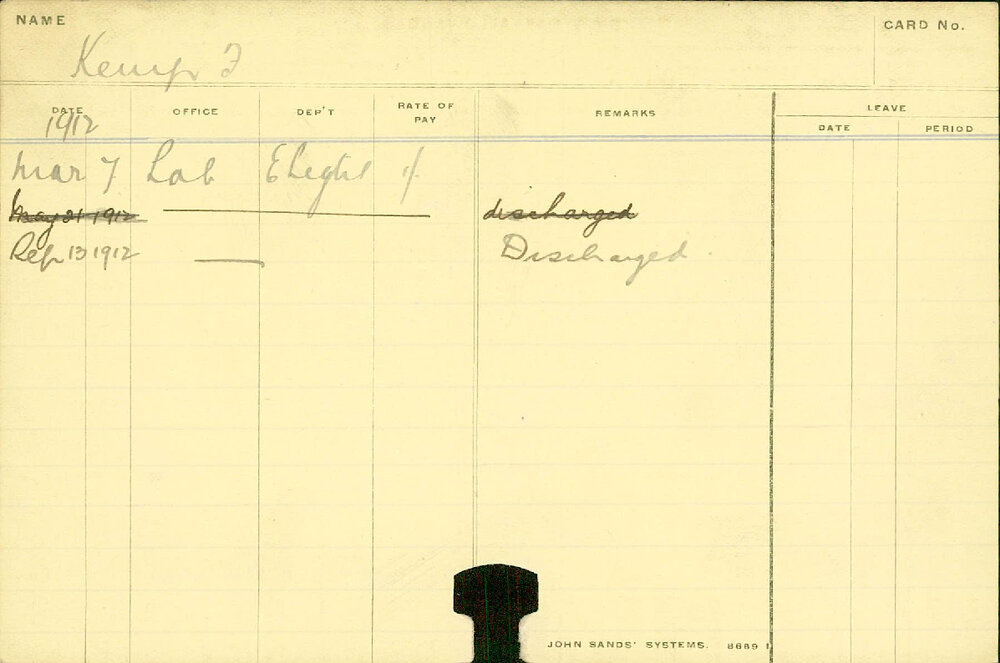 NAME
CARD No.
Kemp F
DATE OFFICE DEP'T RATE OF PAY REMARKS LEAVE
DATE PERIOD
1912
Mar 7 Lab ELight
May 21 1912 discharged
Sep 13 1912 Discharged
JOHN SANDS' SYSTEMS. 8689